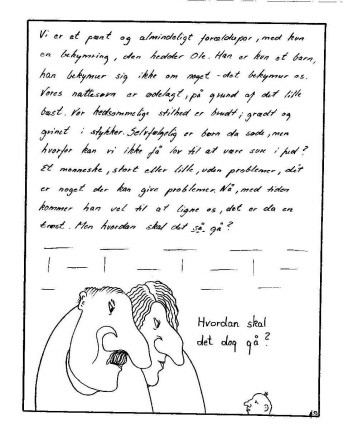 Vi er et pænt og almindeligt forældrepar, med kun
en bekymring, den hedder Ole. Han er kun et barn,
han bekymrer sig ikke om noget - det bekymrer os.
Vores nattesøvn er ødelagt, på grund af det lille
bæst. Vor hedsommelige stilhed er brudt, grædt og
grinet i stykker. Selvfølgelig er børn da søde, men
hvorfor kan vi ikke få lov til at være sure i fred?
Et menneske, stort eller lille, uden problemer, dét
er noget der kan give problemer. Nå, med tiden
kommer han vel til at ligne os, det er da en
trøst. Men hvordan skal det så gå?
Hvordan skal
det dog gå?